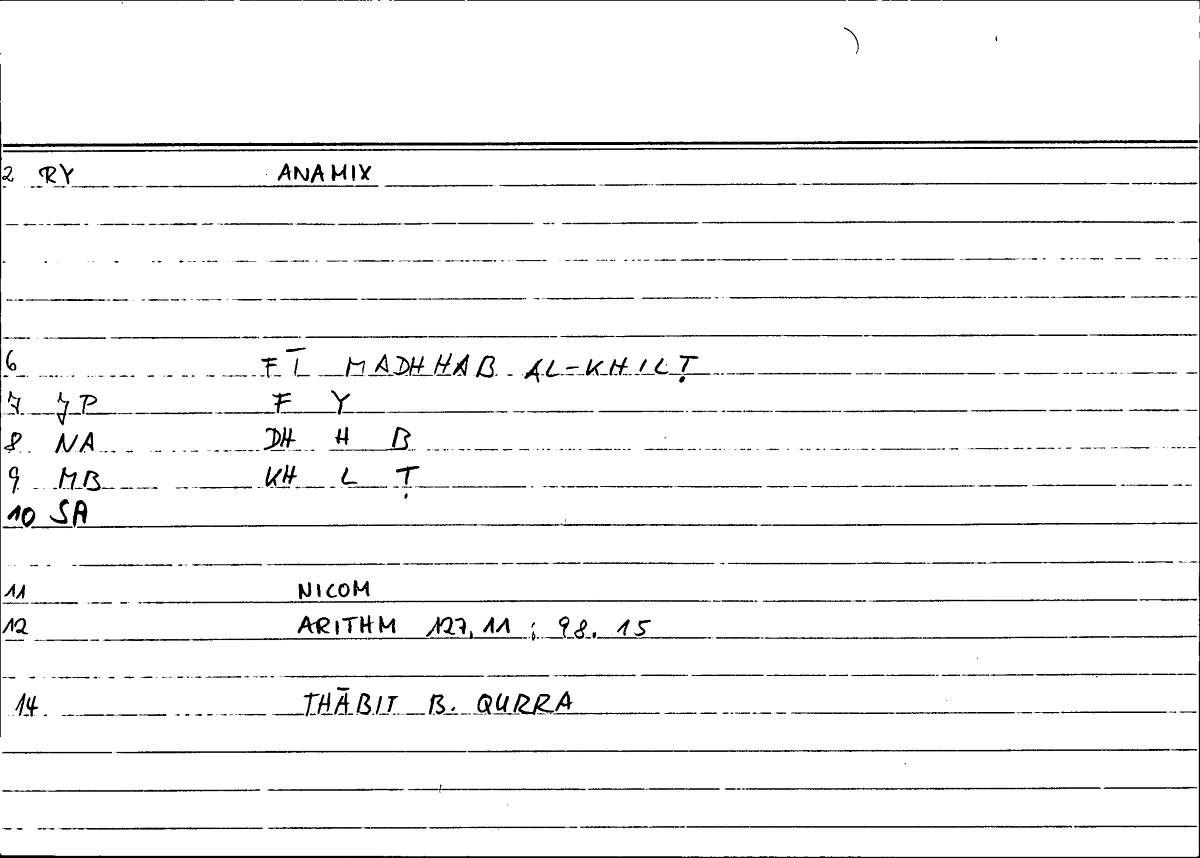 2 RY ANAMIX
6 FĪ MADHHAB AL-KHILṬ
7 JP F Y
8 NA DH H B
9 MB KH L Ṭ
10 SA
11 NICOM
12 ARITHM 127,11 ; 98.15
14 THĀBIT B. QURRA